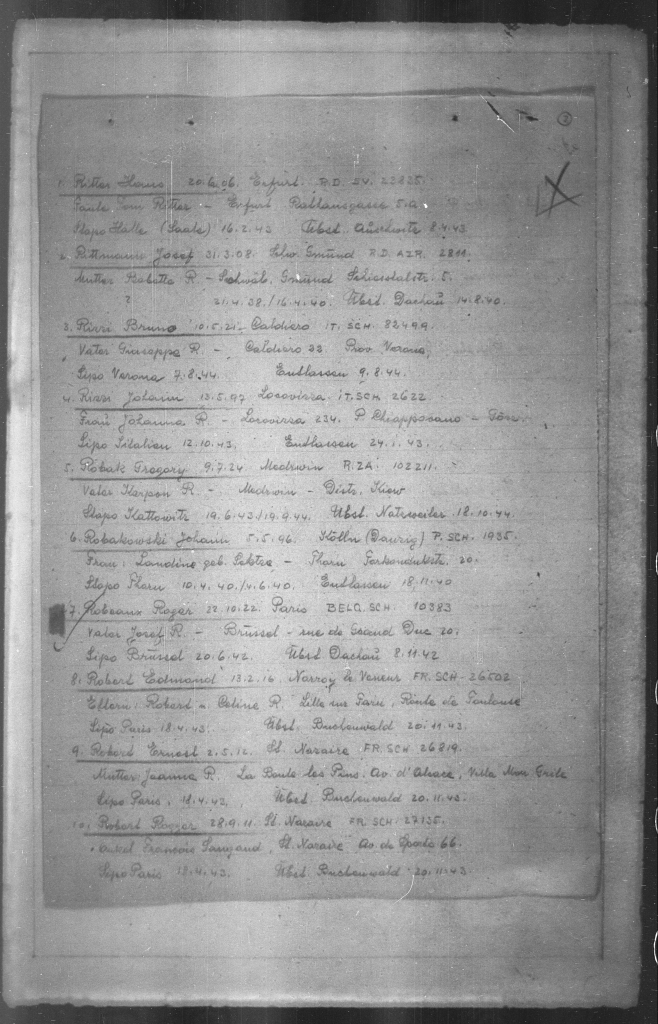 2
1. Ritter Hans 20.6.06. Erfurt R.D. SV. 23825.
Tante Ritter – Erfurt 5a
Stapo Halle (Saale) 16.2.43 Übst. Auschwitz 8.4.43.
2. Rittmann Josef 31.3.08. Schw. Gmünd R.D. AZR. 2811.
Mutter Babette R – Schwäb. Gmünd 5.
? 21.4.38./16.4.40. Übst. Dachau 14.8.40.
3. Rizzi Bruno 10.5.21. Caldiero IT. SCH. 82499.
Vater Giuseppe R. – Caldiero 33 Prov Verona,
Sipo Verona 7.8.44. Entlassen 9.8.44.
4. Rizzi Johann 13.5.97 Locovizza IT. SCH 2622.
Frau Johanna R – Locovizza 234. P. Chiappovano –
Sipo Italien 12.10.43. Entlassen 24.1.43.
5. Robak Gregory 9.7.24 Medwin R.ZA. 102211.
Vater Karpon R – Medwin – Distr. Kiew
Stapo Kattowitz 19.6.43./19.9.44. Übst. Natzweiler 18.10.44.
6. Robakowski Johann 5.5.96. Kölln (Danzig) P. SCH. 1935.
Frau: geb. – Thorn 20.
Stapo Thorn 10.4.40./4.6.40. Entlassen 18.11.40
7. Robeaux Roger 22.10.22. Paris BELG. SCH. 10383
Vater Josef R. – Brüssel – rue de Grand Duc 20.
Sipo Brüssel 20.6.42. Übst Dachau 8.11.42
8. Robert Edmond 13.2.16 Norroy le Veneur FR. SCH. 26502
Eltern: Robert u. Celine R. Lille Route de Toulouse
Sipo Paris 18.4.43. Übst. Buchenwald 20.11.43.
9. Robert Ernest 2.5.12. St. Nazaire FR. SCH 26819.
Mutter Joanna R. La Boule les Pins. Av. d'Alsace, Villa Mon
Sipo Paris. 18.4.43. Übst. Buchenwald 20.11.43.
10. Robert Roger 28.9.11. St. Nazaire FR. SCH. 27135.
Onkel Francois, St. Nazaire Av. de 66.
Sipo Paris 18.4.43. Übst. Buchenwald 20.11.43.